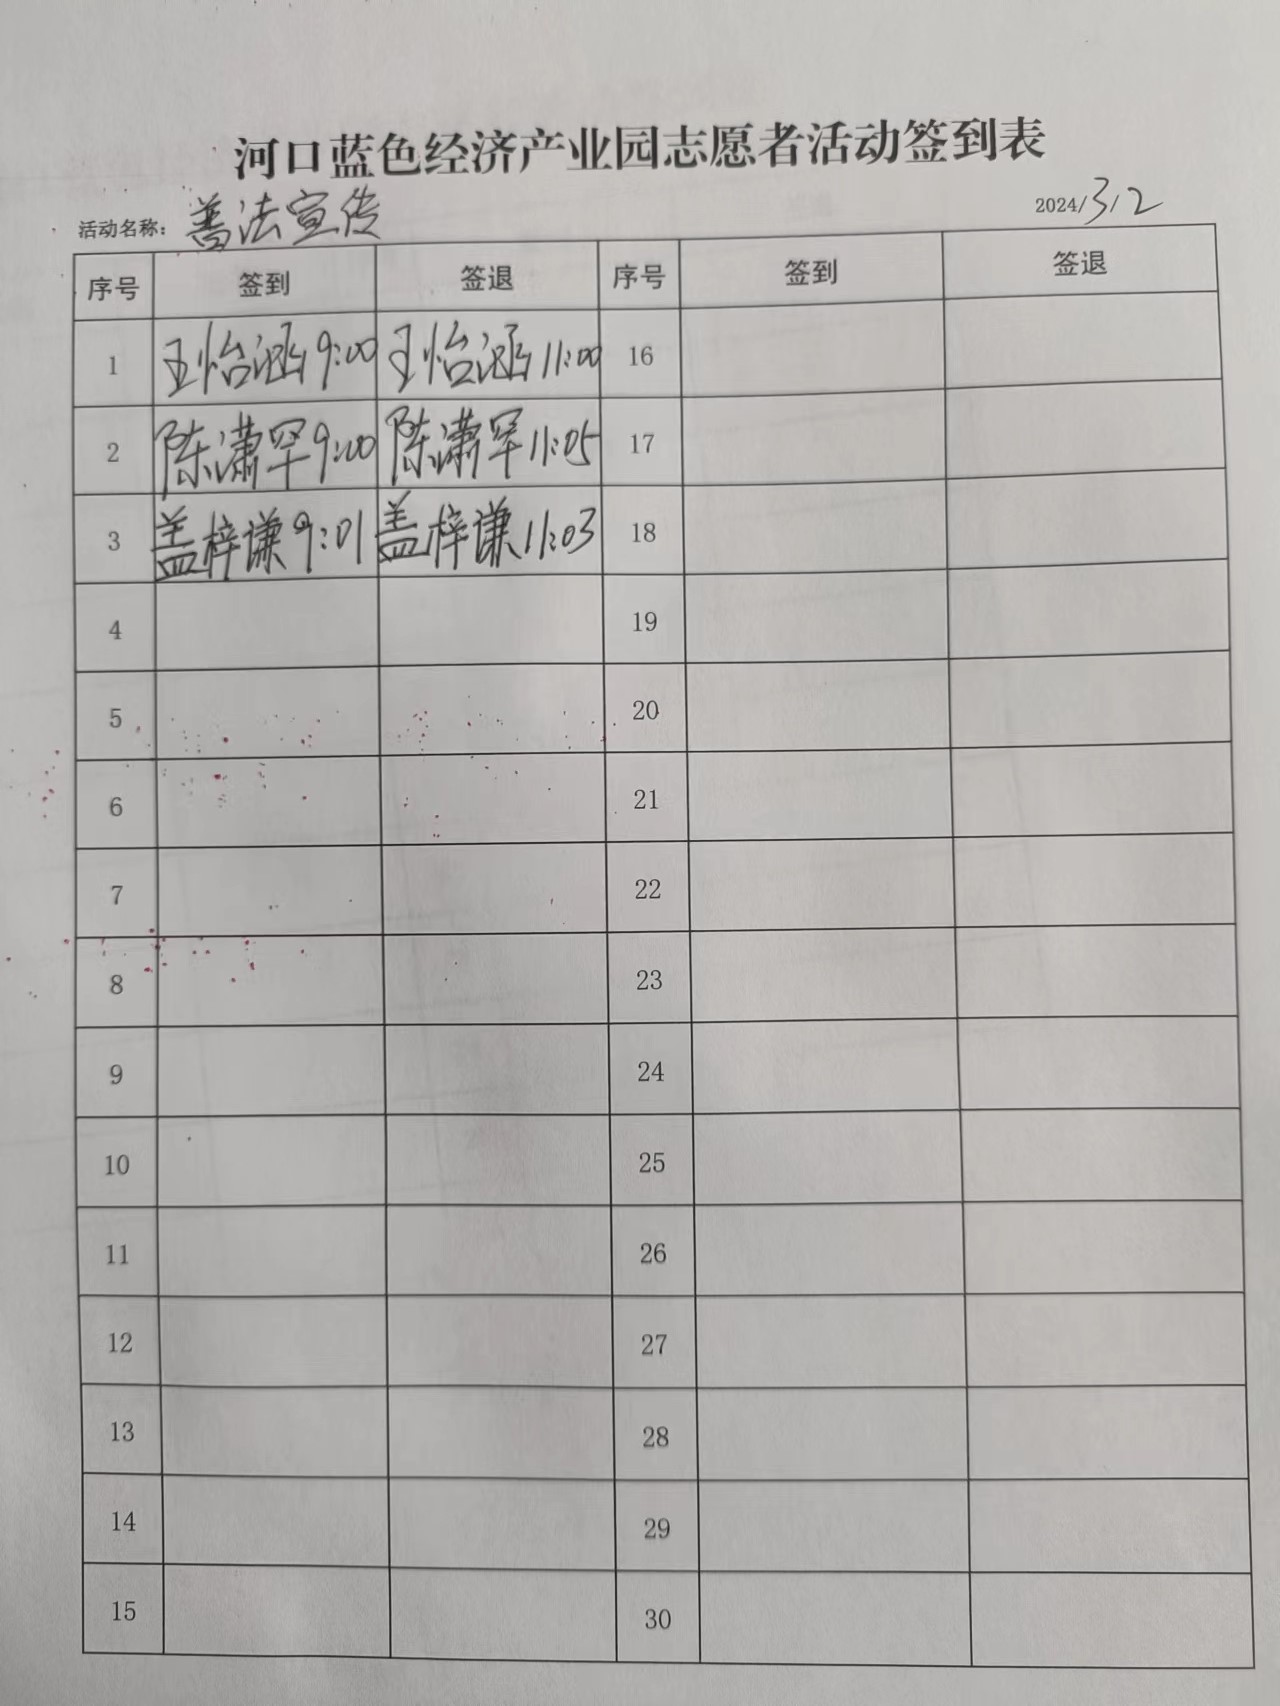 河口蓝色经济产业园志愿者活动签到表
活动名称：普法宣传 2024/3/2
序号 签到 签退 序号 签到 签退
1 王怡涵 9:00 王怡涵 11:00 16
2 陈潇罕 9:00 陈潇罕 11:05 17
3 盖梓谦 9:01 盖梓谦 11:03 18
4 19
5 20
6 21
7 22
8 23
9 24
10 25
11 26
12 27
13 28
14 29
15 30